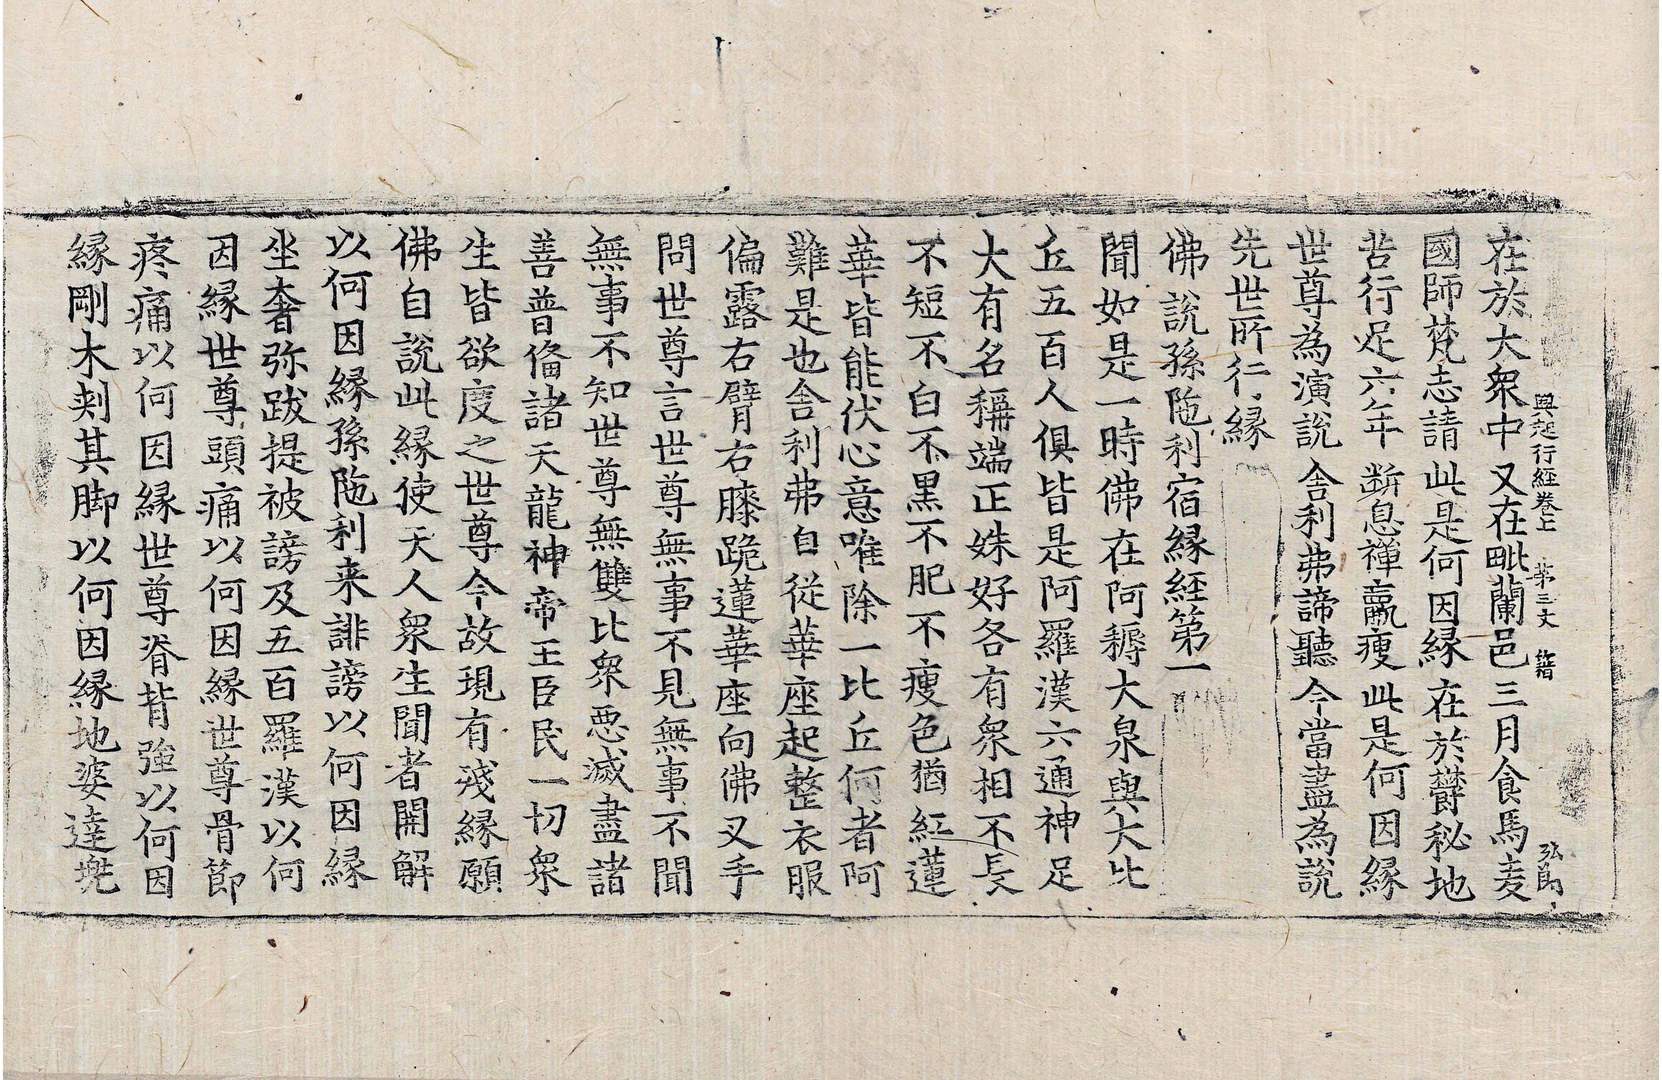 興起行經卷上 第三丈 籍 弘眞
在於大衆中又在毗蘭邑三月食馬麦
國師梵志請此是何因縁在於欝秘地
苦行足六年断息禪羸瘦此是何因縁
世尊為演說舎利弗諦聽今當盡為說
先世所行縁
佛說孫陁利宿縁経第一
聞如是一時佛在阿耨大泉與大比
丘五百人俱皆是阿羅漢六通神足
大有名稱端正姝好各有衆相不長
不短不白不黒不肥不瘦色猶紅蓮
華皆能伏心意唯除一比丘何者阿
難是也舎利弗自従華座起整衣服
偏露右臂右膝跪蓮華座向佛叉手
問世尊言世尊無事不見無事不聞
無事不知世尊無雙比衆惡滅盡諸
善普俻諸天龍神帝王臣民一切衆
生皆欲度之世尊今故現有殘縁願
佛自說此縁使天人衆生聞者開解
以何因縁孫陁利来誹謗以何因縁
坐奢弥跋提被謗及五百羅漢以何
因縁世尊頭痛以何因縁世尊骨節
疼痛以何因縁世尊脊背強以何因
縁剛木刾其脚以何因縁地婆達兠